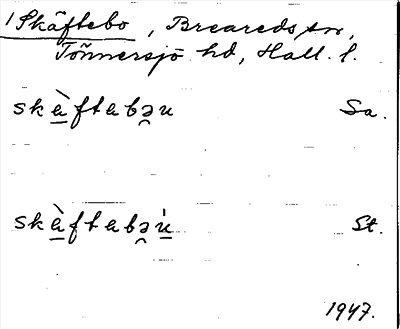 1 Skäftebo, Breareds sn,
Tönnersjö hd, Hall. l.
skàftabəu Sa.
skàftabəù St.
1947.